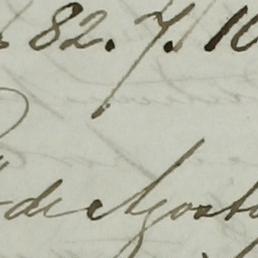 82. 7. 10
de Agosto